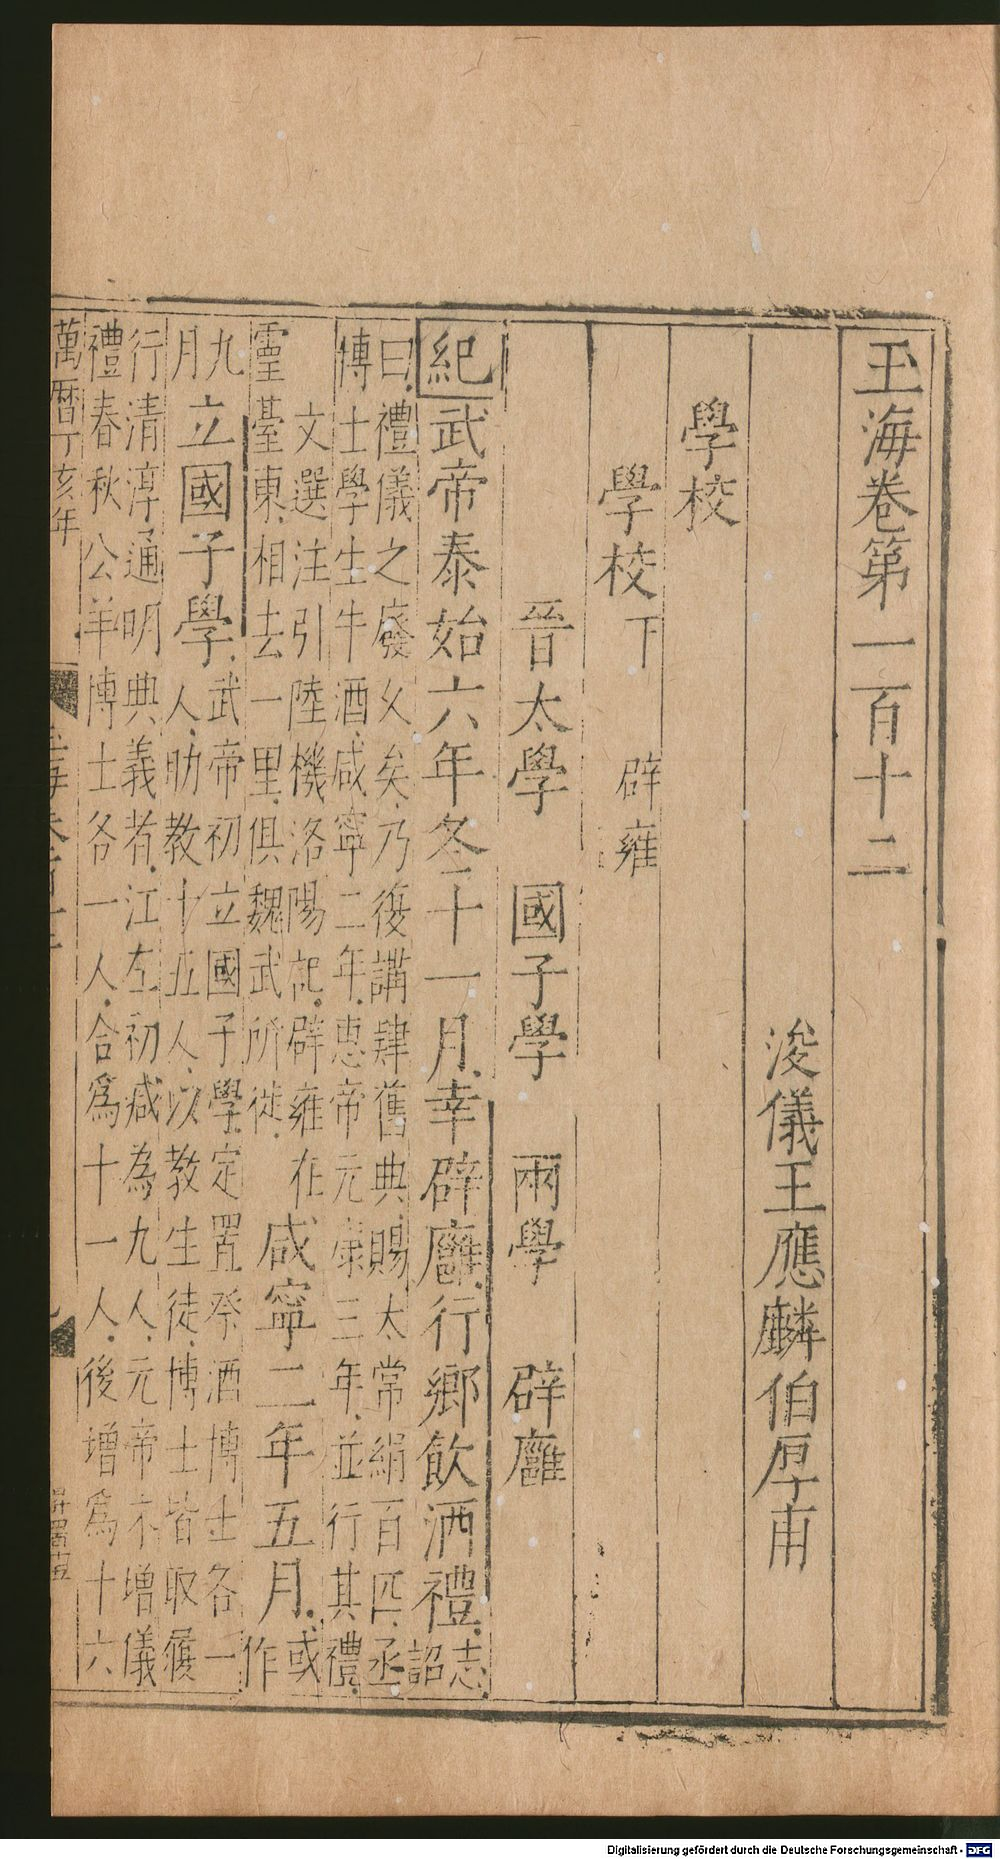 玉海卷第一百十二
浚儀王應麟伯厚甫
學校
學校下 辟雍
晉太學 國子學 兩學 辟廱
紀武帝泰始六年冬十一月幸辟廱行鄉飲酒禮志詔
曰禮儀之廢久矣乃復講肄舊典賜太常絹百匹丞
博士學生牛酒咸寧二年惠帝元康三年並行其禮
文選注引陸機洛陽記辟雍在
靈臺東相去一里俱魏武所徙
咸寧二年五月或作
九月
立國子學
武帝初立國子學定置祭酒博士各一
人助教十五人以教生徒博士皆取履
行清淳通明典義者江左初減為九人元帝末增儀
禮春秋公羊博士各一人合爲十一人後增爲十六
萬曆丁亥年
Digitalisierung gefördert durch die Deutsche Forschungsgemeinschaft - DFG